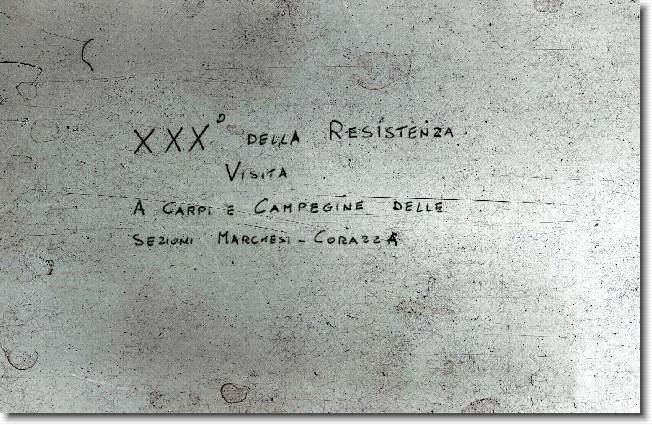 XXX° DELLA RESISTENZA
VISITA
A CARPI E CAMPEGINE DELLE
SEZIONI MARCHESI - CORAZZA